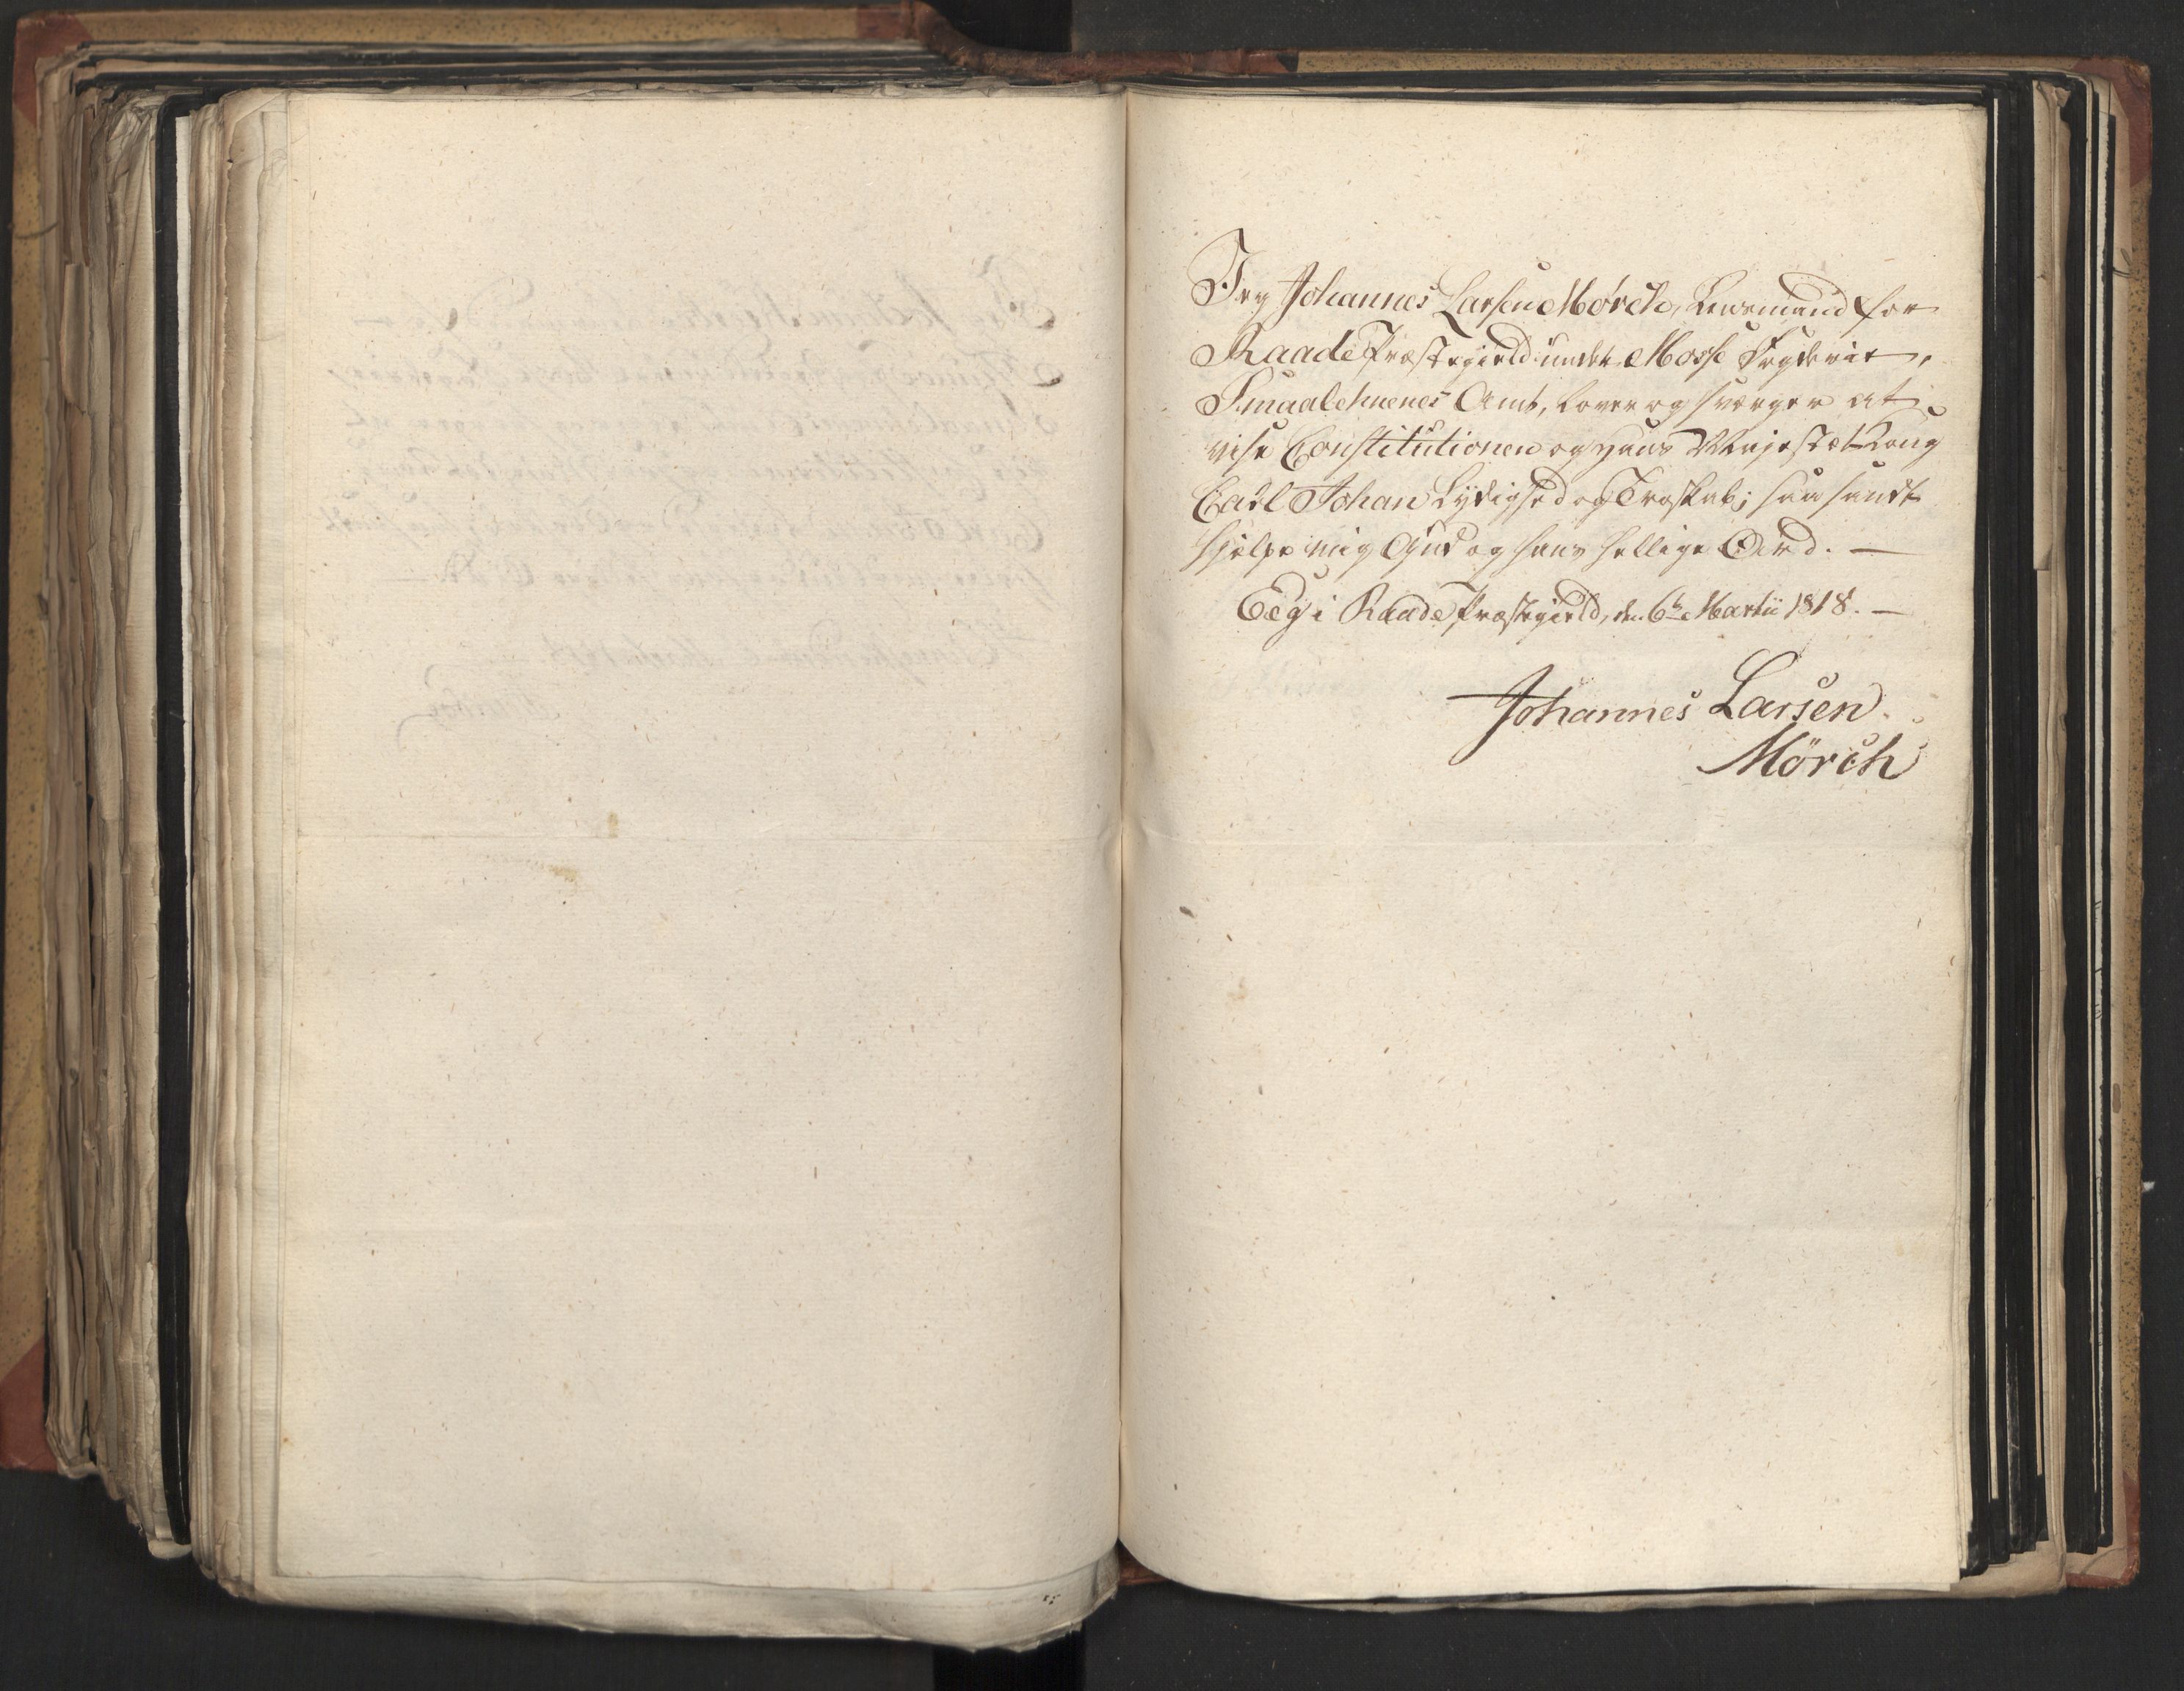 Jeg Johannes Larsen Mörch, Lensmand for
Raade Præstegield under Mosse Fogderie,
Smaalehnenes Amt, lover og sværger at
vise Constitutionen og Hans Majestæt Kong
Carl Johan Lydighed og Troskab; saa sandt
hjelpe mig Gud og hans hellige Ord. —
Eeg i Raade Præstegield, den 6te Martii 1818. —
Johannes Larsen
Mörch